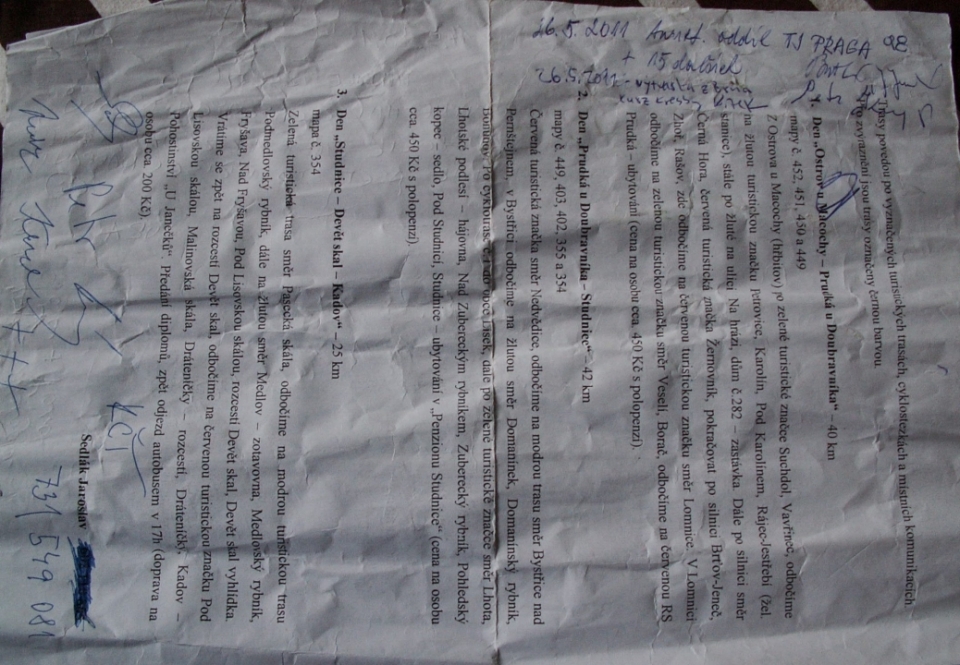 26.5.2011 oddíl TJ PRAGA
+ 15 družek
26.5.2011 -
Trasy povedou po vyznačených turistických trasách, cyklostezkách a místních komunikacích.
zvýraznění jsou trasy označeny černou barvou.
Den „Ostrov u Macochy – Prudká u Doubravníka“ – 40 km
mapy č. 452, 451, 450 a 449
Z Ostrova u Macochy (hřbitov) po zelené turistické značce Suchdol, Vavřinec, odbočíme
na žlutou turistickou značku Petrovice, Karolín, Pod Karolínem, Rájec-Jestřebí (žel.
stanice), stále po žluté na ulici Na hrázi, dům č.282 – zastávka. Dále po silnici směr
Černá Hora, červená turistická značka Žernovník, pokračovat po silnici Brťov-Jeneč,
Žhoř, Rašov, zde odbočíme na červenou turistickou značku směr Lomnice. V Lomnici
odbočíme na zelenou turistickou značku směr Veselí, Borač, odbočíme na červenou RS
Prudká – ubytování (cena na osobu cca. 450 Kč s polopenzí).
2. Den „Prudká u Doubravníka – Studnice“ – 42 km
mapy č. 449, 403, 402, 355 a 354
Červená turistická značka směr Nedvědice, odbočíme na modrou trasu směr Bystřice nad
Pernštejnem, v Bystřici odbočíme na žlutou směr Domanínek, Domanínský rybník,
Bohuňov. Po cyklotrase do obce Lísek, dále po zelené turistické značce směr Lhota,
Lhotské podlesí – hájovna, Nad Zubereckým rybníkem, Zuberecký rybník, Pohledský
kopec – sedlo, Pod Studnicí, Studnice – ubytování v „Penzionu Studnice“ (cena na osobu
cca. 450 Kč s polopenzí).
3. Den „Studnice – Devět skal – Kadov“ – 25 km
mapa č. 354
Zelená turistická trasa směr Pasecká skála, odbočíme na modrou turistickou trasu
Podmedlovský rybník, dále na žlutou směr Medlov – zotavovna, Medlovský rybník,
Fryšava, Nad Fryšavou, Pod Lisovskou skálou, rozcestí Devět skal, Devět skal vyhlídka.
Vrátíme se zpět na rozcestí Devět skal, odbočíme na červenou turistickou značku Pod
Lisovskou skálou, Malinovská skála, Dráteničky – rozcestí, Dráteničky, Kadov –
Pohostinství „U Janečků“. Předání diplomů, zpět odjezd autobusem v 17h (doprava na
osobu cca. 200 Kč).
Sedlák Jaroslav
Petr
KČT
731 549 081